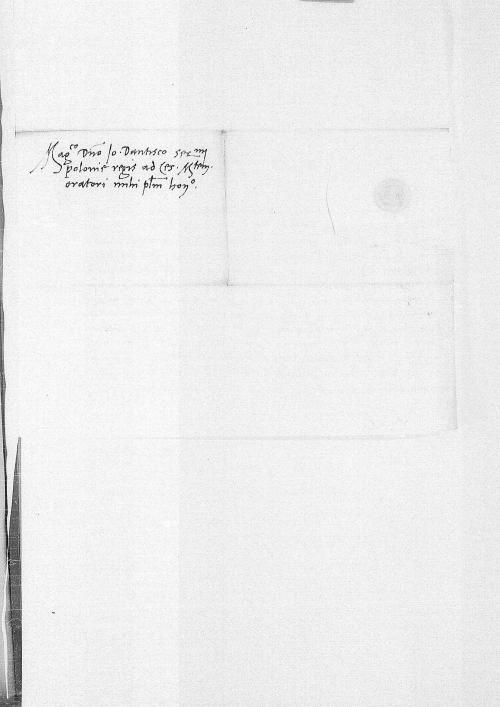 Mag^co Dño Jo. Dantisco ser^mi
polonie regis ad Ces. M^tem.
oratori mihi pl̃m hon^o.